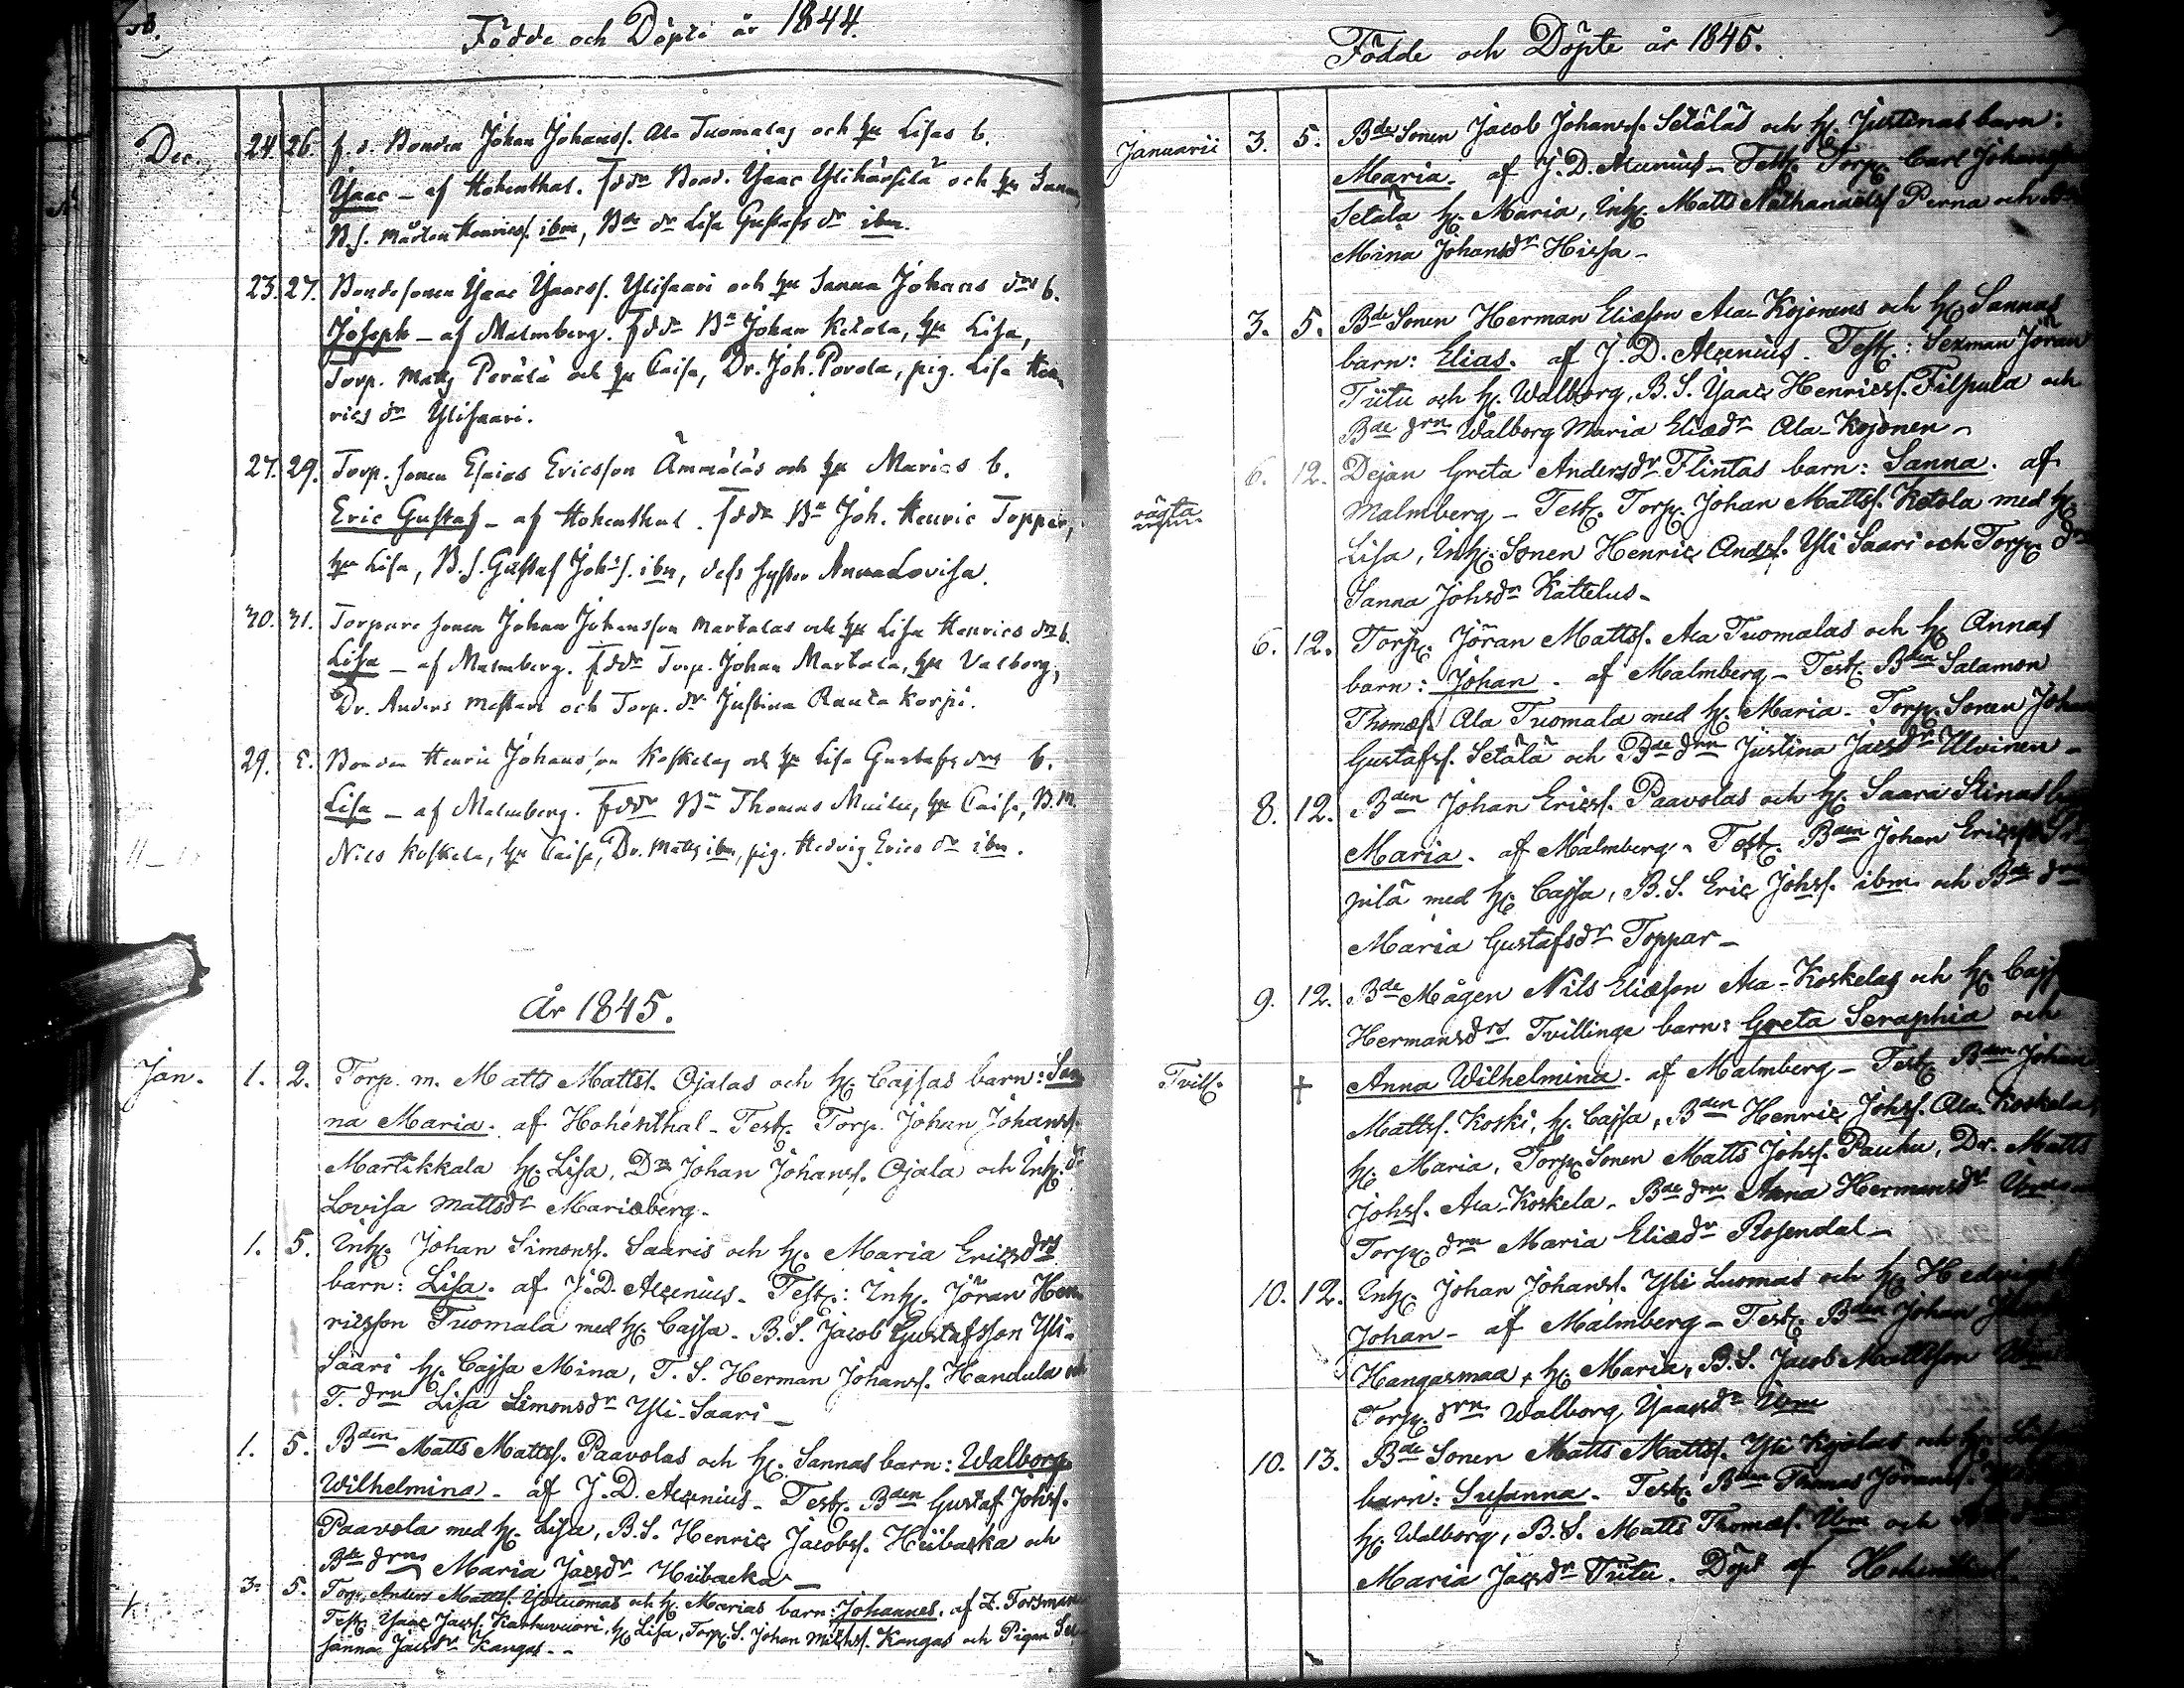 Födde och Döpte år 1844.
Dec. 24. 26. f. d. Bonden Johan Johanss. Ala Tuomalas och hu Lisas b.
Ysaac – af Hohenthal. fddr Bond. Ysaac Ylihärsilä och hu Sanna
B.S. Mårten Henricss. ibm, Bde dr Lisa Gustafs dr ibm.
23. 27. Bondesonen Ysaac Ysaacss. Ylisaari och hu Sanna Johans drs b.
Joseph – af Malmberg. fddr Bn Johan Ketola, hu Lisa,
Torp. Matts Perälä och hu Caisa, Dr. Joh. Porola, pig. Lisa Hen-
rics dr Ylisaari.
27. 29. Torp. sonen Esaias Ericsson Ämmäläs och hu Marias b.
Eric Gustaf – af Hohenthal. fddr Bn Joh. Henric Toppar,
hu Lisa, B.S. Gustaf Johs. ibm, dess syster Anna Lovisa.
30. 31. Torpare sonen Johan Johansson Martalas och hu Lisa Henrics drs b.
Lisa – af Malmberg. fddr Torp. Johan Martala, hu Valborg,
Dr. Anders Mestari och Torp. dr Justina Rauta Korpi.
29. E. Bonden Henric Johansson Koskelas och hu Lisa Gustafs drs b.
Lisa – af Malmberg. fddr Bn Thomas Muilu, hu Caisa, B.M.
Nils Koskela, hu Caisa, Dr. Matts ibm, pig. Hedvig Erics dr ibm.
År 1845.
Jan. 1. 2. Torp. m. Matts Mattss. Ojalas och H. Cajsas barn: San
na Maria. af Hohenthal – Test. Torp. Johan Johanss.
Martikkala H. Lisa, Dr Johan Johanss. Ojala och Inh. dr
Lovisa Mattsdr Mariæberg.
1. 5. Inh. Johan Simonss. Saaris och H. Maria Ericsdrs
barn: Lisa. af J. D. Alcenius. Test: Inh. Jöran Hen-
ricsson Tuomala med H. Cajsa. B.S. Jacob Gustafsson Yli-
Saari H. Cajsa Mina, T. S. Herman Johanss. Handula och
T. drn Lisa Simonsdr Yli-Saari –
1. 5. Bden Matts Mattss. Paavolas och H. Sannas barn: Walborg
Wilhelmina. af J. D. Alcenius – Test. Bden Gustaf Johss.
Paavola med H. Lisa, B.S. Henric Jacobss. Hübacka och
Bde drn Maria Jacsdr Hübacka –
3. 5. Torp. Anders Mattss. Ylituomas och H. Marias barn: Johannes. af Z. Forsman
Test. Ysaac Jacss. Karhuvuori, H. Lisa, Torp. S. Johan Michss. Kangas och Pigan Su
sanna Jacsdr Kangas. –
Födde och Döpte år 1845.
Januarii 3. 5. Bde Sonen Jacob Johanss. Setäläs och H. Justinas barn:
Maria. af J. D. Alcenius – Test. Torp. Carl Johans
Setälä H. Maria, Inh. Matts Nathanaëlss Perna och
Mina Johansdr Hissa –
3. 5. Bde Sonen Herman Eliæson Ala-Kojonens och H. Sannas
barn: Elias. af J. D. Alcenius. Test.: Sexman Jöran
Tiitu och H. Walborg, B.S. Ysaac Henricss. Filpula och
Bde drn Walborg Maria Eliædr Ala-Kojonen –
oägta 6. 12. Dejan Greta Andersdr Flintas barn: Sanna. af
Malmberg – Test. Torp. Johan Mattss. Ketola med H.
Lisa, Inh. Sonen Henric Andss. Yli Saari och Torp. dr
Sanna Johsdr Kattelus –
6. 12. Torp. Jöran Mattss. Ala Tuomalas och H. Annas
barn: Johan. af Malmberg – Test. Bden Salamon
Thomæs. Ala Tuomala med H. Maria – Torp. Sonen Johan
Gustafss. Setälä och Bde drn Justina Jacsdr Ulvinen –
8. 12. Bden Johan Ericss. Paavolas och H. Saara Stinas b
Maria. af Malmberg – Test. Bden Johan Ericss.
pilä med H. Cajsa, B.S. Eric Johss. ibm och Bde drn
Maria Gustafsdr Toppar –
9. 12. Bde Mågen Nils Eliæson Ala-Koskelas och H. Cajsa
Hermansdrs Tvillinge barn: Greta Seraphia och
Tvill. + Anna Wilhelmina. af Malmberg – Test. Bden Johan
Mattss. Koski, H. Cajsa, Bden Henric Johss. Ala-Koskela,
H. Maria, Torp. Sonen Matts Johss. Pauhu, Dr. Matts
Johss. Ala-Koskela – Bde drn Anna Hermansdr
Torp. drn Maria Eliædr Rosendal –
10. 12. Inh. Johan Johanss. Yli Luomas och H. Hedvigs
Johan – af Malmberg – Test. Bden Johan
Hangasmaa, H. Maria, B.S. Jacob Mattsson
Torp. drn Walborg Ysaacsdr Ibm
10. 13. Bde Sonen Matts Mattss. Yli Kojolas och H.
barn: Susanna. Test. Bden Thomas Jöranss.
H. Walborg, B.S. Matts Thomæs. Ibm och
Maria Jacsdr Tiitu. Döpt af Hohenthal